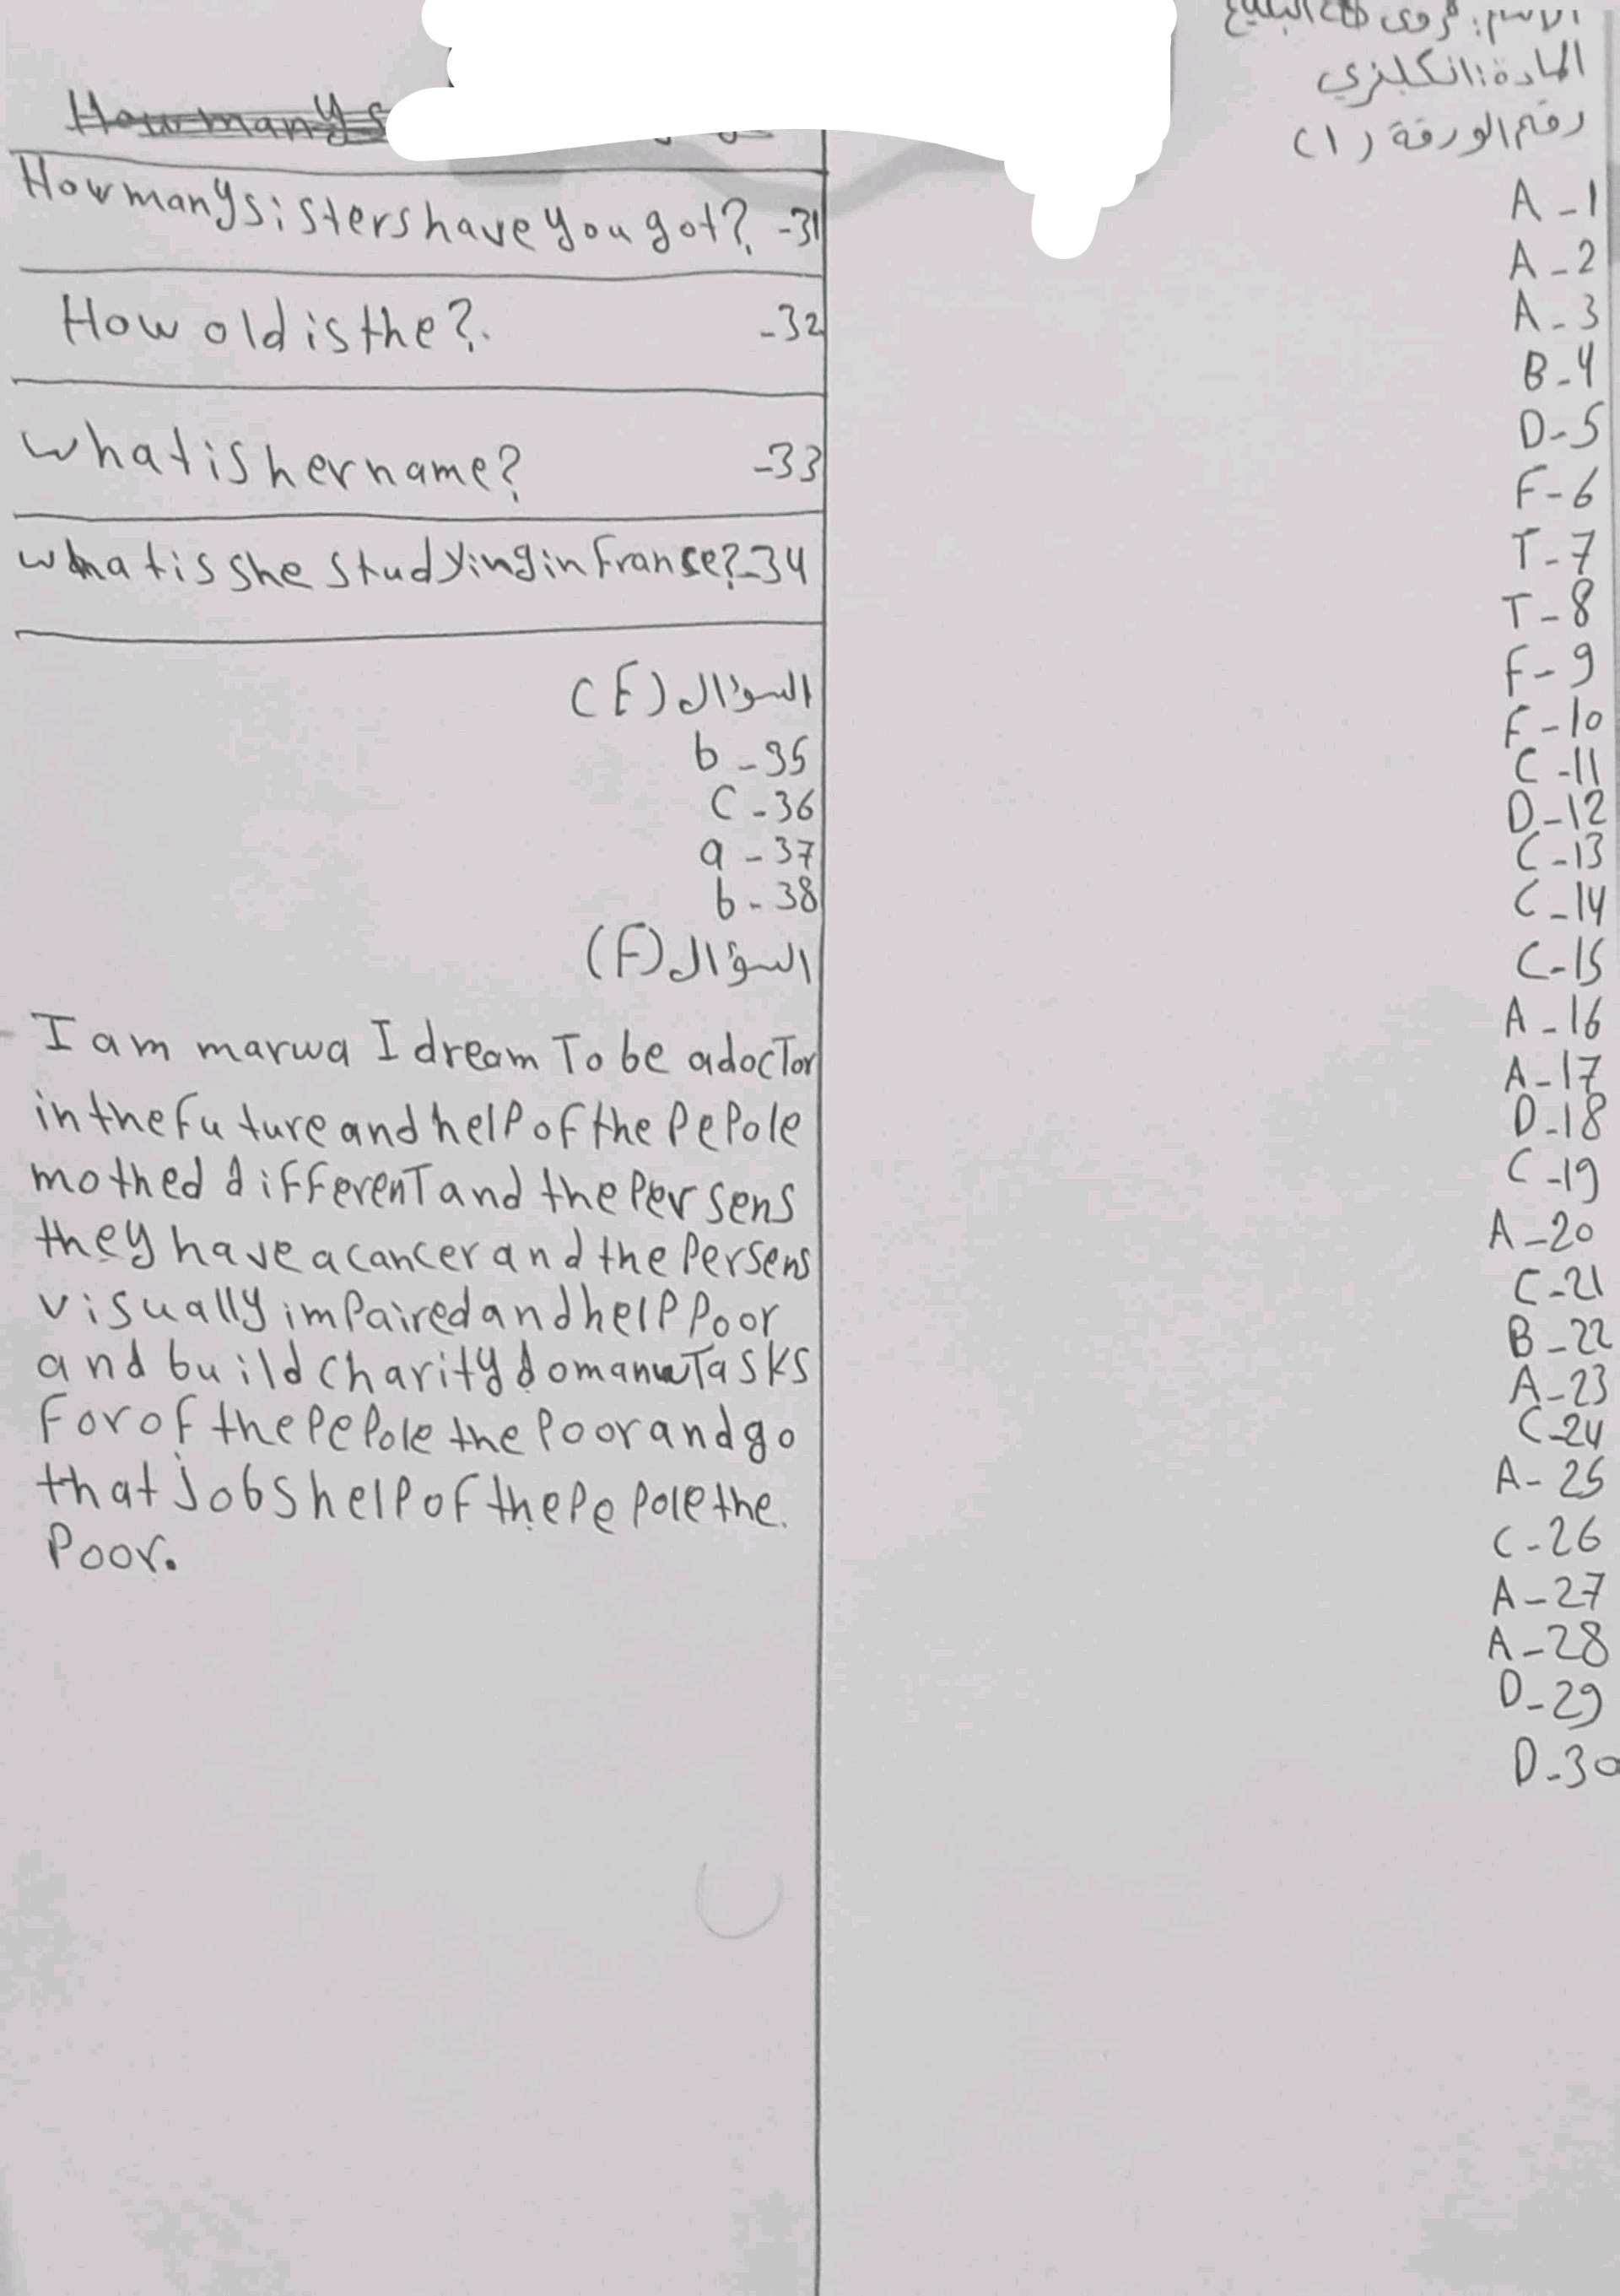 الاسم: مروى
المادة: انكليزي
رقم الورقة (١)
A - 1
A - 2
A - 3
B - 4
D - 5
F - 6
T - 7
T - 8
F - 9
F - 10
C - 11
D - 12
C - 13
C - 14
C - 15
A - 16
A - 17
D - 18
C - 19
A - 20
C - 21
B - 22
A - 23
C - 24
A - 25
C - 26
A - 27
A - 28
D - 29
D - 30
How many s
How many sisters have you got? - 31
How old is the? - 32
what is her name? - 33
what is she studying in franse? - 34
السؤال (E)
b - 35
C - 36
a - 37
b - 38
السؤال (F)
I am marwa I dream To be a docTor
in the fu ture and help of the Pepole
mothed differenT and the Persens
they have a cancer and the Persens
visually impaired and help Poor
and build charity do Tasks
For of the Pepole the Poor and go
that jobs help of the Pepole the.
Poor.